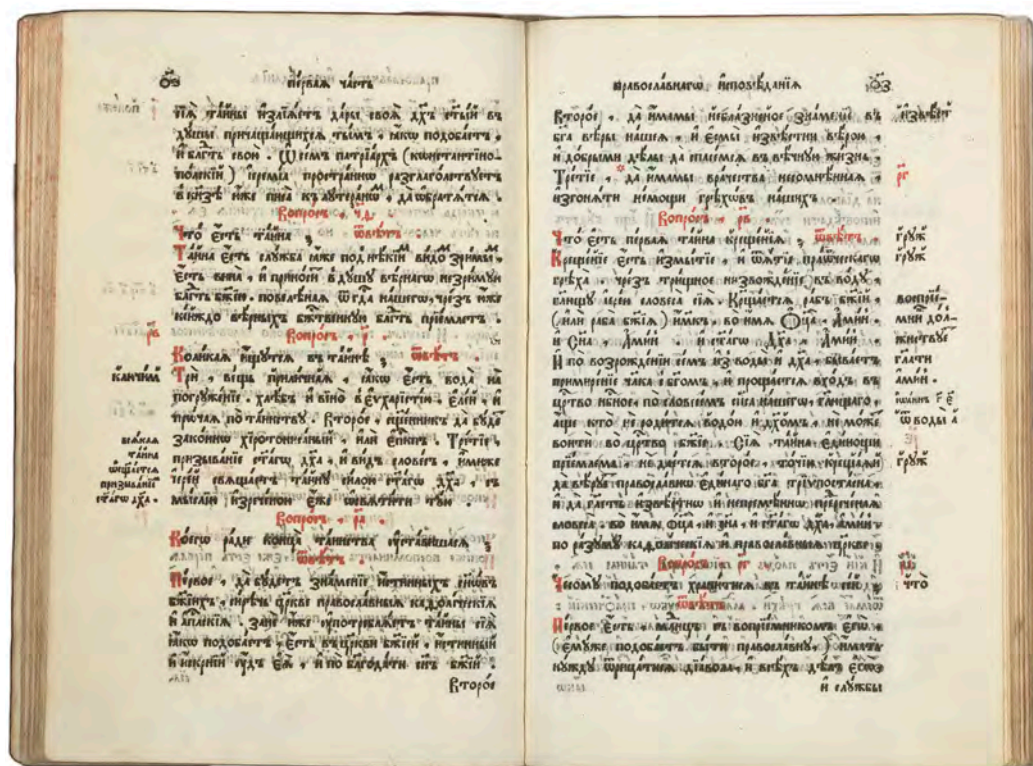 пе́рваѧ ча́сть
сїѧ̀ та́йны и҆злїѧ́етъ да́ры своѧ̑ дх҃ъ ст҃ы́й въ
дꙋ́шы причаща́ющихсѧ ты́мъ, ꙗ҆́кѡ подоба́етъ,
и҆ блг҃ть свою̀. Ѡ҆ се́мъ патрїа́рхъ (кѡнстантїно-
по́лскїй) і҆еремі́а простра́ннѡ разглаго́лствꙋетъ
в кни́зѣ ю҆́же писа̀ къ лꙋтера́нѡⷨ, да ѡ҆братѧ́тсѧ.
Вопро́съ. ч҃ѳ.
Что̀ є҆́сть та́йна; ѿвѣ́тъ.
Та́йна є҆́сть слꙋ́жба ꙗ҆́же под нѣ́кїиⷨ ви́доⷨ зри́мыⷨ,
є҆́сть вина̀, и҆ прино́ситъ в дꙋ́шꙋ вѣ́рнагѡ незри́мꙋю
блг҃ть бж҃їю. повелѣ́наѧ ѿ гд҇а на́шегѡ, чре́зъ ю҆́же
кі́йждо вѣ́рныхъ бж҃твенную блг҃ть прїе́млетъ.
Вопро́съ. р҃.
Коли́каѧ и҆́щꙋтсѧ въ та́йнѣ; ѿвѣ́тъ.
Трѝ. ве́щь прили́чнаѧ, ꙗ҆́кѡ є҆́сть вода̀ на
погрꙋже́нїе. хлѣ́бъ и҆ вїно̀ в є҆ѵхарі́стїи. є҆ле́й, и҆
про́чаѧ по та́инствꙋ. Второ́е, сщ҃е́нникъ да бꙋ́деⷮ
зако́ннѡ хїротони́санный, и҆лѝ є҆пк҇пъ. Тре́тїе,
призыва́нїе ст҃а́гѡ дх҃а, и҆ ви́дъ слове́съ, и҆́миже
і҆ере́й свѧща́етъ та́йнꙋ си́лою ст҃а́гѡ дх҃а, съ
мы́слїю и҆зрече́ною є҆́же ѡ҆свѧти́ти тꙋ́ю.
Вопро́съ. р҃а.
Коегѡ̀ ра́ди конца̀ та́инства ᲂу҆ста́вишасѧ;
ѿвѣ́тъ.
Пе́рвое, да бꙋ́детъ зна́менїе и҆́стинныхъ сн҃ѡ́въ
бж҃їихъ, си́рѣчь цр҃кве правосла́вныѧ каѳоли́ческїѧ
и҆ а҆пл҇кїѧ. занѐ и҆́же ᲂу҆потреблѧ́етъ та́йны сїѧ̀
ꙗ҆́кѡ подоба́етъ, є҆́сть въ цр҃кви бж҃їей, и҆́стинный
и҆ и҆́скреннїй ᲂу҆́дъ є҆ѧ̀, и҆ по бл҃года́ти сн҃ъ бж҃їй.
Второ́е
канчи́нъ
всѧ́каѧ
та́йна
ѡ҆сща́етсѧ
призыва́нїе
ст҃а́гѡ дх҃а.
правосла́внагѡ и҆сповѣ́данїѧ
Второ́е, да и҆́мамы неблазне́ное зна́менїе въ
бг҃а вѣ́ры на́шеѧ, и҆ є҆смы̀ и҆звѣ́стни вѣ́рою,
и҆ до́брыми дѣ́лы да спасе́мсѧ въ вѣ́чнꙋю жи́знь.
Тре́тїе, да и҆́мамы враче́ства несомнѣ́ннаѧ,
и҆згонѧ́ти не́мощи грѣхѡ́въ на́шихъ.
Вопро́съ. р҃в.
Что̀ є҆́сть пе́рваѧ та́йна креще́нїѧ; ѿвѣ́тъ.
Креще́нїе є҆́сть и҆змы́тїе, и҆ ѿѧ́тїе пра́ѻтческагѡ
грѣха̀ чрез̾ три́щное низвожде́нїе въ во́дꙋ,
гл҃ющꙋ і҆ере́ю словеса̀ сїѧ̀. Креща́етсѧ ра́бъ бж҃їй,
(и҆лѝ раба̀ бж҃їѧ) и҆́мⷬ҇къ, во и҆́мѧ Ѻ҆ц҃а̀. А҆ми́нь.
и҆ Сн҃а. А҆ми́нь. и҆ ст҃а́гѡ Дх҃а. А҆ми́нь.
И҆ по возрожде́нїи се́мъ и҆з̾ воды̀ и҆ дх҃а, быва́етъ
примире́нїе чл҃ка с бг҃омъ, и҆ проща́етсѧ вхо́дъ въ
црⷭ҇тво нбⷭ҇ное, по словесе́мъ сп҃са на́шегѡ, гл҃ющагѡ.
а҆́ще кто̀ не роди́тсѧ водо́ю и҆ дх҃омъ, не мо́же
вни́ти во црⷭ҇тво бж҃їе. Сїѧ̀ та́йна є҆ди́ною
прїе́млема, не дае́тсѧ второ́е, то́чїю креща́ѧй
да вѣ́рꙋетъ правосла́внѡ є҆ди́наго бг҃а трїѵпоста́сна,
и҆ да гл҃етъ и҆звѣ́стнѡ и҆ непремѣ́ннѡ прⷣрече́ннаѧ
словеса̀. во и҆́мѧ ѻ҆ц҃а̀, и҆ сн҃а, и҆ ст҃а́гѡ дх҃а, а҆ми́нь.
по ра́зꙋмꙋ каѳоли́ческїѧ и҆ правосла́вныѧ цр҃кве.
Вопро́съ. р҃г.
Чесомꙋ̀ подоба́етъ храни́тисѧ въ та́йнѣ се́й;
ѿвѣ́тъ.
Пе́рвое є҆́сть младе́нцъ съ воспрїе́мникомъ є҆гѡ̀,
(є҆мꙋ́же подоба́етъ бы́ти правосла́внꙋ,) и҆́мать
нꙋ́ждꙋ ѿрица́тисѧ дїа́вола, и҆ всѣ́хъ дѣ́лъ є҆гѡ̀
и҆ слꙋ́жбы
и҆звѣ́ст
грꙋж
грꙋж
воспрїе́-
мни́и дол-
жствꙋе
гл҃ати
а҆ми́нь.
і҆ѡа́ннъ г҃ є҃
ѿ воды̀ и҆
грꙋж
что̀